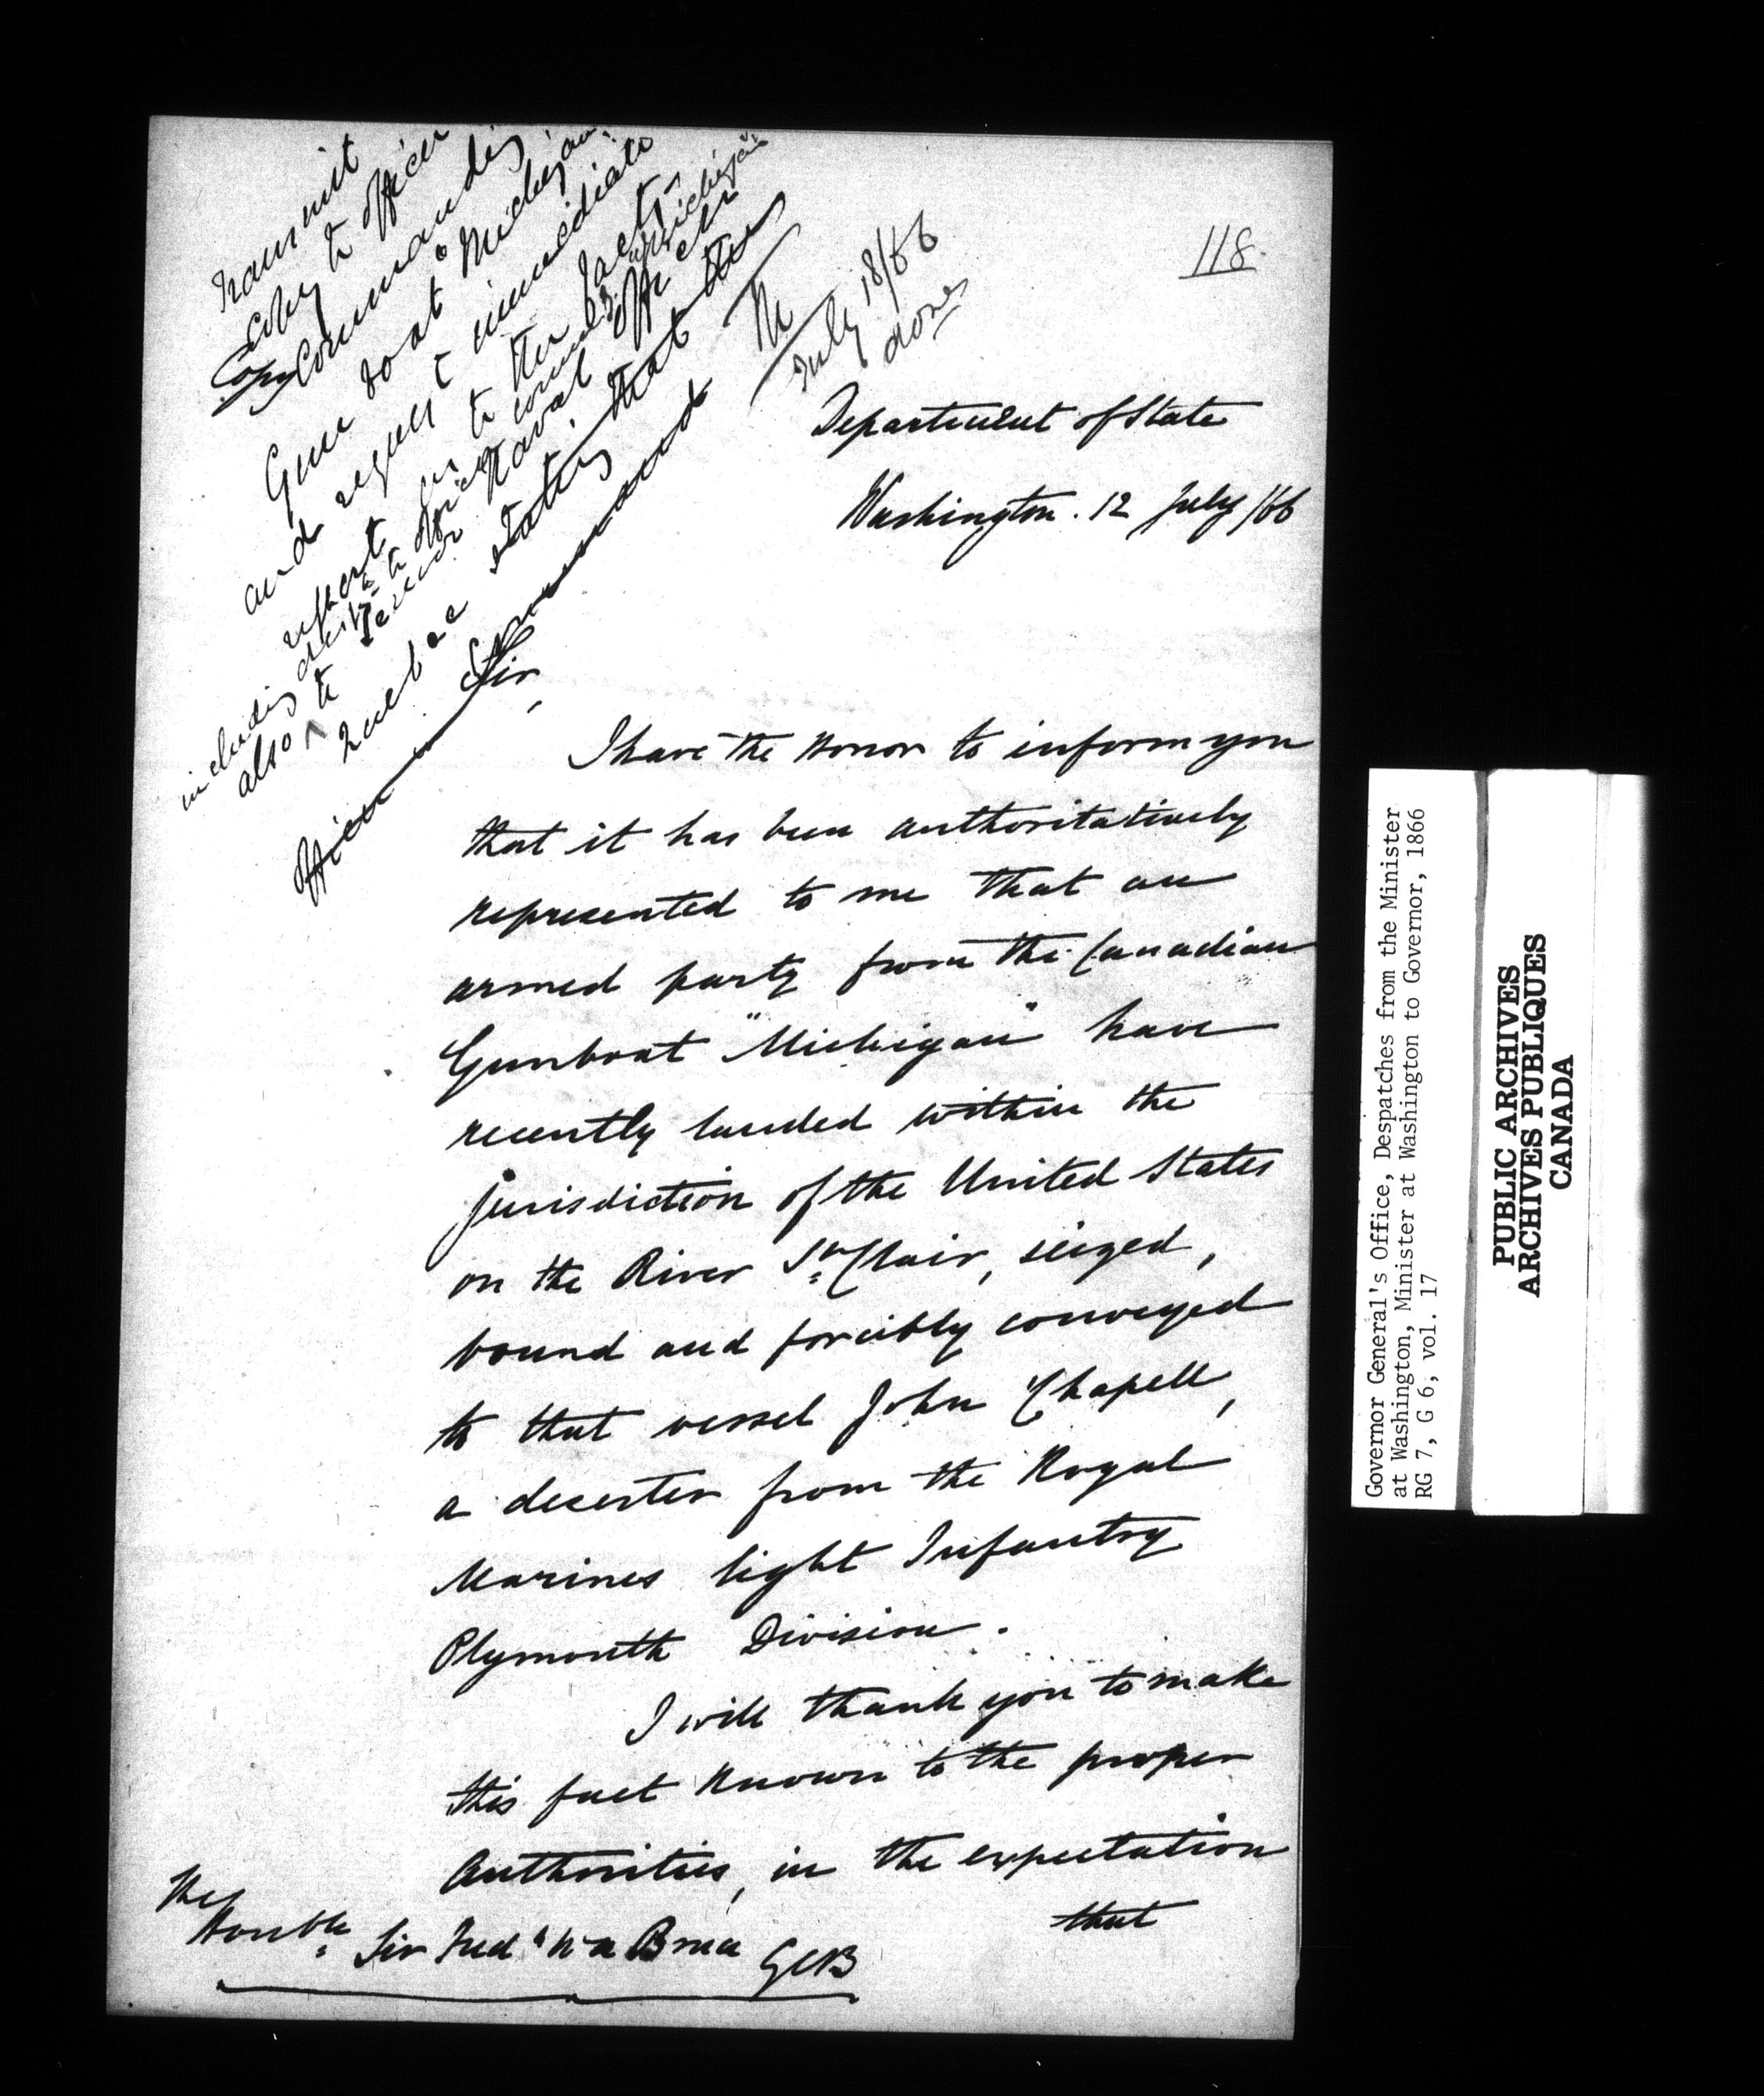 Transmit
Copy to officer
Copy
Commanding
Gun boat Michigan
and request immediate
report
to the facts
including
also to Senior Naval Officer
Quebec stating that the
Officer Command
M
July 18/66
done
118.
Department of State
Washington. 12 July /66
Sir,
I have the Honor to inform you
that it has been authoritatively
represented to me that an
armed party from the Canadian
Gunboat "Michigan" have
recently landed within the
jurisdiction of the United States
on the River St Clair, seized,
bound and forcibly conveyed
to that vessel John Chapell,
a deserter from the Royal
Marines light Infantry
Plymouth Division.
I will thank you to make
this fact Known to the proper
Authorities, in the expectation
that
The
Honble Sir Fredk W A Bruce GCB
Governor General's Office, Despatches from the Minister
at Washington, Minister at Washington to Governor, 1866
RG 7, G 6, vol. 17
PUBLIC ARCHIVES
ARCHIVES PUBLIQUES
CANADA